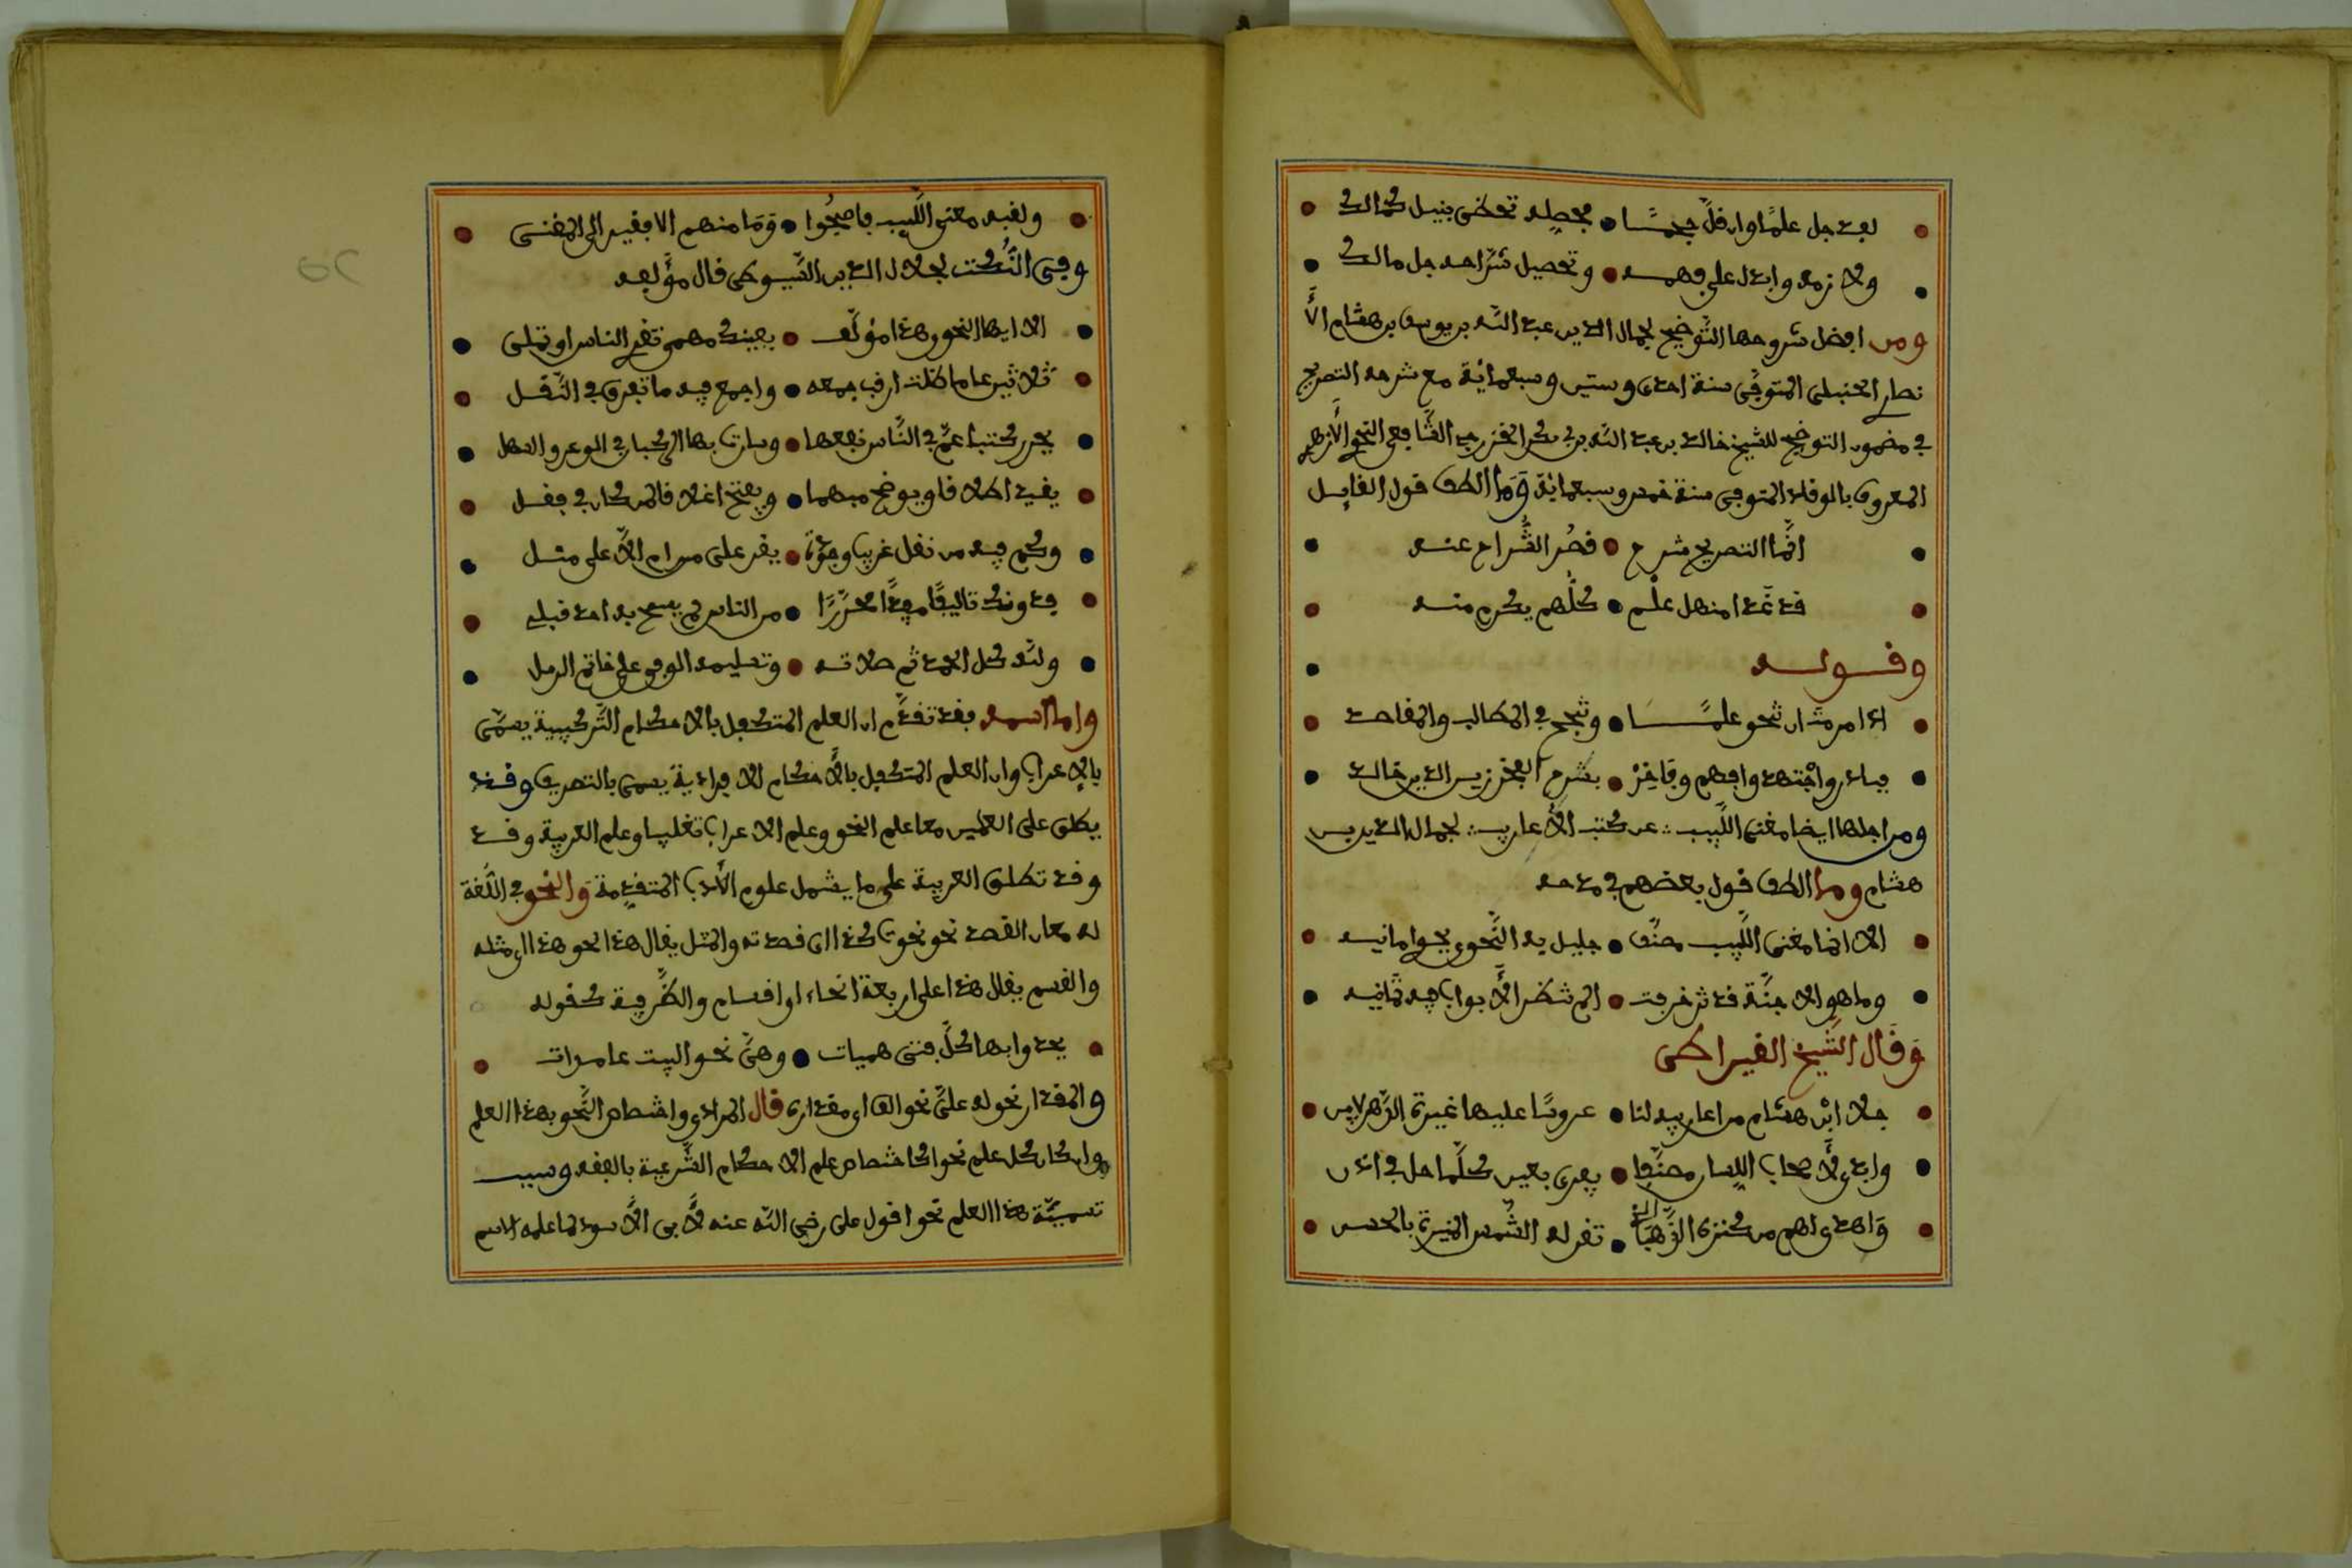 لقد جل علما وان قل جسما • فحصله تحظى بنيل كمالك
ولازمه وابذل على فهمه • وتحصيل شراحه جل مالك
ومن افضل شروحها التوضيح لجمال الدين عبد الله بن يوسف بن هشام الأ
نصاري الحنبلي المتوفى سنة احدى وستين وسبعمائة مع شرحه التصريح
في مضمون التوضيح للشيخ خالد بن عبد الله بن بكر الشافعي النحوي الأزهري
المعروف بالوقاد المتوفى سنة خمس وسبعمائة وما الطف قول القايل
انما التصريح شرح • قصر الشراح عنه
قد غدا منهل علم • كلهم يكرع منه
وقوله
اذا رمت ان تحو علما • وتنجح في المطالب والمقاصد
فبادر واجتهد وافهم وفاخر • بشرح الفخر زين الدين خالد
ومن اجلها ايضا مغني اللبيب عن كتب الأعاريب لجمال الدين بن
هشام وما الطف قول بعضهم في مدحه
الا انما مغني اللبيب مصنف • جليل به النحوي يحوي امانيه
وما هو الا جنة قد تزخرفت • الم تنظر الأبواب فيه ثمانيه
وقال الشيخ القيراطي
جلا ابن هشام من اعاريبه لنا • عروسا عليها غيره الدهر لا يبني
وابدى لأصحاب اللسان مصنفا • يفدى بعين كلما حل في اذن
واهدى لهم من كنزه الذهب • تقر له الشمس المنيرة بالحسن
ولقبه مغني اللبيب فاصبحوا • وما منهم الا فقير الى المغني
وفي النكت لجلال الدين السيوطي قال مؤلفه
الا ايها النحوي هذا مؤلف • يفيدك مهمى تقر الناس او تملي
ثلاثين عاما ظلت ارقب جمعه • واجمع فيه ما تفرق في النقل
يحرر كتبا عم في الناس نفعها • وسارت بها الركبان في الوعر والسهل
يقيد اطلاقا ويوضح مبهما • ويفتح اغلاقا لمن كان في قفل
وكم فيه من نقل غريب • يقر على مر ام الا على مثل
فدونك تاليفا مفيدا محررا • من الناس لم يسمح به احد قبلي
ولله كل الحمد ثم صلاته • وتسليمه الوفي على خاتم الرسل
واما اسمه فقد تقدم ان العلم المتكفل بالاحكام التركيبية يسمى
بالاعراب وان العلم المتكفل بالأحكام الافرادية يسمى بالتصريف وقد
يطلق على العلمين معا علم النحو وعلم الاعراب تغليبا وعلم العربية وقد
وقد تطلق العربية على ما يشمل علوم الأدب المتقدمة والنحو في اللغة
له معان القصد نحو نحوت كذا اي قصدته والمثل يقال هذا نحو هذا اي مثله
والقسم يقال هذا على اربعة انحاء او اقسام والظرفية كقوله
يحدوا بها كل فتى هيات • وهن نحو البيت عامدات
والمقدار نحو له علي نحو الف اي مقداره قال المرادي واختصاص النحو بهذا العلم
وان كان كل علم نحوا كاختصاص علم الاحكام الشرعية بالفقه وسبب
تسمية هذا العلم نحوا قول علي رضي الله عنه لأبي الأسود لما علمه الاسم